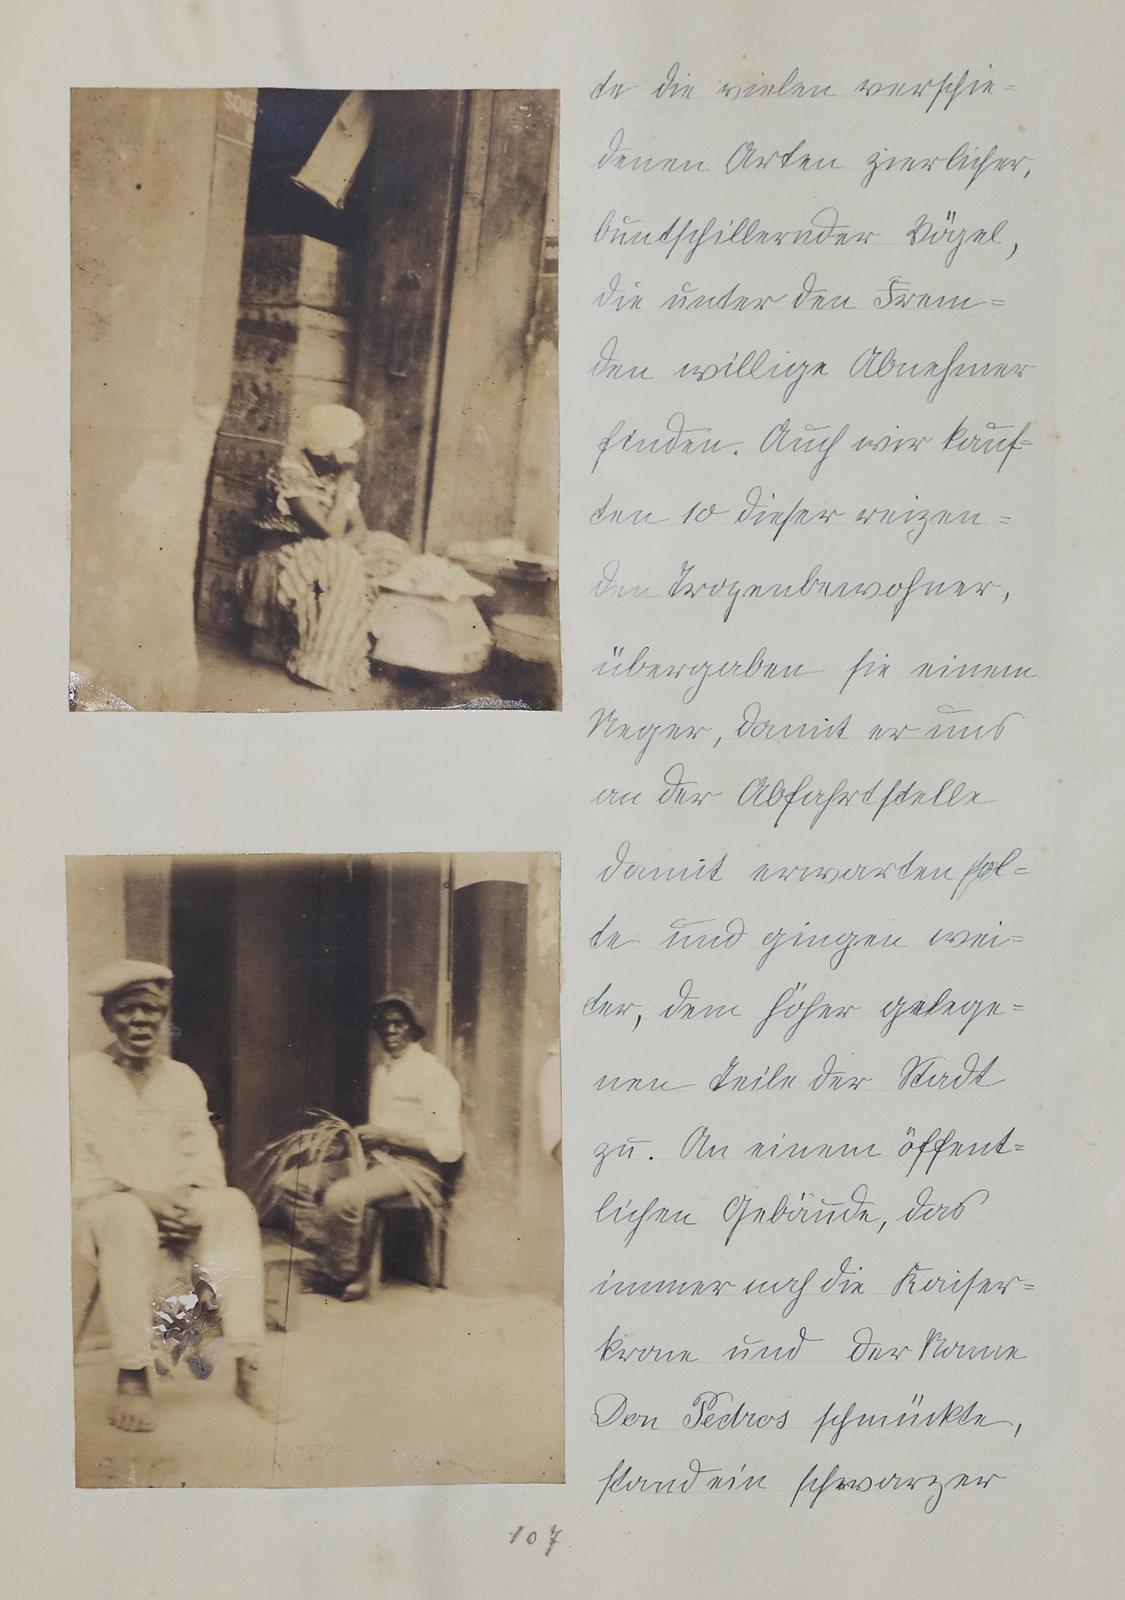 SOU
te die vielen verschie=
denen Arten zierlicher,
buntschillernder Vögel,
die unter den Frem=
den willige Abnehmer
finden. Auch wir kauf=
ten 10 dieser reizen=
den Tropenbewohner,
übergaben sie einem
Neger, damit er uns
an der Abfahrtstelle
damit erwarten sol=
te und gingen wei=
ter, dem höher gelege=
nen Teile der Stadt
zu. An einem öffent=
lichen Gebäude, das
immer noch die Kaiser=
krone und der Name
Don Pedros schmückte,
stand ein schwarzer
107